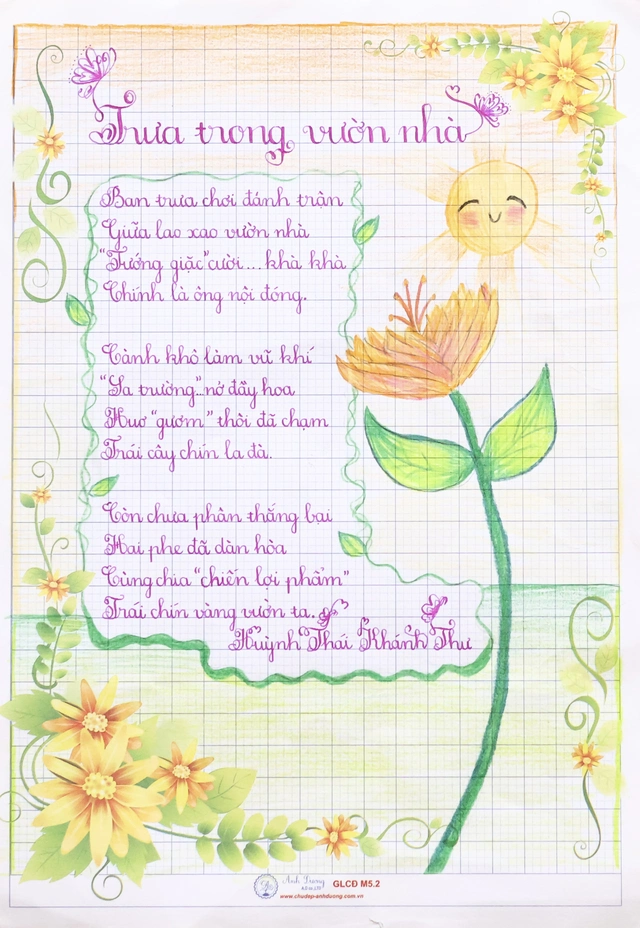 Trưa trong vườn nhà
Ban trưa chơi đánh trận
Giữa lao xao vườn nhà
"Tướng giặc" cười... khà khà
Chính là ông nội đóng.
Cành khô làm vũ khí
"Sa trường"... nở đầy hoa
Huơ "gươm" thôi đã chạm
Trái cây chín la đà.
Còn chưa phân thắng bại
Hai phe đã dàn hòa
Cùng chia "chiến lợi phẩm"
Trái chín vàng vườn ta.
Huỳnh Thái Khánh Thư
Ánh Dương
GLCĐ M5.2
www.chudep-anhduong.com.vn